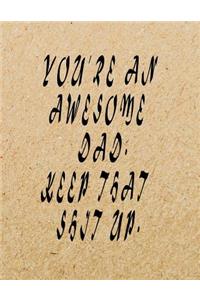 YOU'RE AN
AWESOME
DAD.
KEEP THAT
SHIT UP.